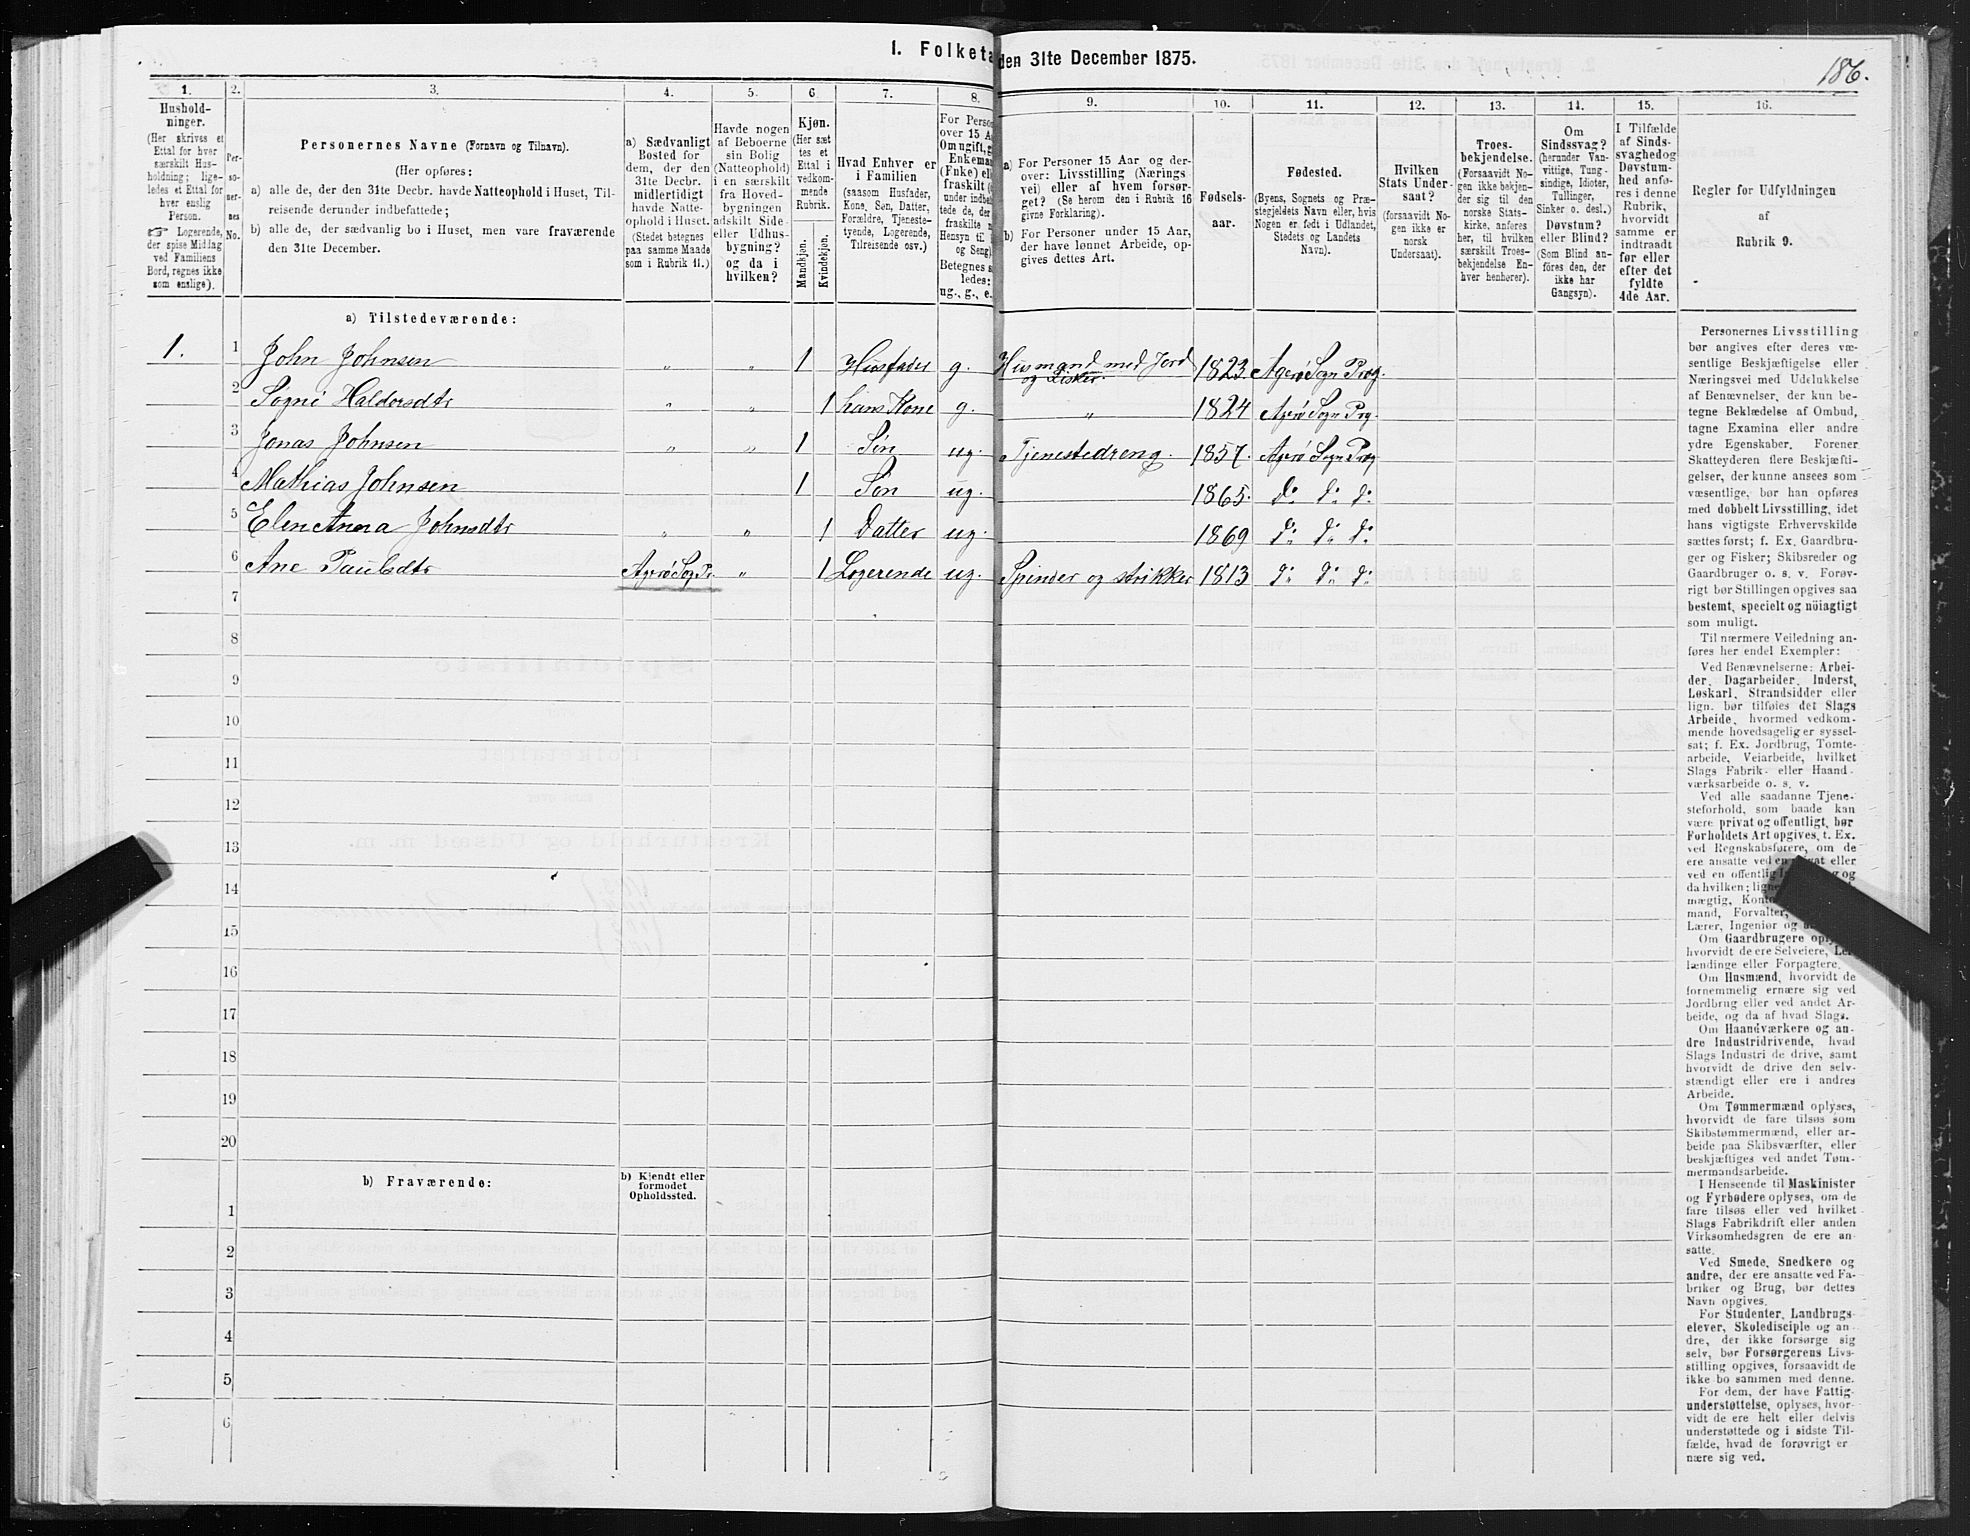 1. Folketa
den 31te December 1875.
186.
1.
2.
3.
4.
5.
6
7.
8.
9.
10.
11.
12.
13.
14.
15.
16.
Hushold-
ninger.
(Her skrives et
Ettal for hver
særskilt Hus-
holdning; lige-
ledes et Ettal for
hver enslig
Person.
☞ Logerende,
der spise Middag
ved Familiens
Bord, regnes ikke
som enslige).
Per-
so-
ner-
nes
No.
Personernes Navne (Fornavn og Tilnavn).
(Her opføres:
a) alle de, der den 31te Decbr. havde Natteophold i Huset, Til-
reisende derunder indbefattede;
b) alle de, der sædvanlig bo i Huset, men vare fraværende
den 31te December.
a) Sædvanligt
Bosted for
dem, der den
31te Decbr.
midlertidigt
havde Natte-
ophold i Huset.
(Stedet betegnes
paa samme Maade
som i Rubrik 11.)
Havde nogen
af Beboerne
sin Bolig
(Natteophold)
i en særskilt
fra Hoved-
bygningen
adskilt Side-
eller Udhus-
bygning?
og da i
hvilken?
Kjøn.
(Her sæt
tes et
Ettal i
vedkom-
mende
Rubrik.
Mandkjøn.
Kvindekjøn.
Hvad Enhver er
i Familien
(saasom Husfader,
Kone, Søn, Datter,
Forældre, Tjeneste-
tyende, Logerende,
Tilreisende osv.)
For Person
over 15 A
Om ugift, g
Enkeman
(Enke) ell
fraskilt (
under indbe
tede de, der
fraskilte n
Hensyn til
og Seng)
Betegnes s
ledes:
ug., g., e.
a) For Personer 15 Aar og der-
over: Livsstilling (Nærings
vei) eller af hvem forsør-
get? (Se herom den i Rubrik 16
givne Forklaring).
b) For Personer under 15 Aar,
der have lønnet Arbeide, op-
gives dettes Art.
Fødsels-
aar.
Fødested.
(Byens, Sognets og Præ-
stegjeldets Navn eller, hvis
Nogen er født i Udlandet,
Stedets og Landets
Navn).
Hvilken
Stats Under-
saat?
(forsaavidt No-
gen ikke er
norsk
Undersaat).
Troes-
bekjendelse.
(Forsaavidt No-
gen ikke bekjen-
der sig til den
norske Stats-
kirke, anføres
her, til hvilken
særskilt Troes-
bekjendelse En-
hver henhører).
Om
Sindssvag?
(herunder Van-
vittige, Tung-
sindige, Idioter,
Tullinger,
Sinker o. desl.)
Døvstum?
eller Blind?
(Som Blind an-
føres den, der
ikke har
Gangsyn).
I Tilfælde
af Sinds-
svaghed og
Døvstum-
hed anfø-
res i denne
Rubrik,
hvorvidt
samme er
indtraadt
før eller
efter det
fyldte
4de Aar.
Regler for Udfyldningen
af
Rubrik 9.
a) Tilstedeværende:
1. 1 John Johnsen „ „ 1 Husfader g. Husmand med Jord og Fisker. 1823. Agerø Sogn Præg.
2 Signe Haldorsdtr „ „ 1 hans Kone g. „ 1824 Agerø Sogn Præg.
3 Jonas Johnsen „ „ 1 Søn ug. Tjenestedreng. 1857. Agerø Sogn Præg
4 Mathias Johnsen 1 Søn ug. 1865. do do do
5 Elen Anna Johnsdtr „ „ 1 Datter ug. 1869 do do do
6 Ane Paulsdtr Agerø Sog Pr. „ 1 Logerende ug. Spinder og strikker 1813 do do do
7
8
9
10
11
12
13
14
15
16
17
18
19
20
b) Fraværende:
b) Kjendt eller
formodet
Opholdssted.
1
2
3
4
5
6
Personernes Livsstilling
bør angives efter deres væ-
sentlige Beskjæftigelse eller
Næringsvei med Udelukkelse
af Benævnelser, der kun be-
tegne Beklædelse af Ombud,
tagne Examina eller andre
ydre Egenskaber. Forener
Skatteyderen flere Beskjæfti-
gelser, der kunne ansees som
væsentlige, bør han opføres
med dobbelt Livsstilling, idet
hans vigtigste Erhvervskilde
sættes først; f. Ex. Gaardbru-
ger og Fisker; Skibsreder og
Gaardbruger o. s. v. Forøv-
rigt bør Stillingen opgives saa
bestemt, specielt og nöiagtigt
som muligt.
Til nærmere Veiledning an-
føres her endel Exempler:
Ved Benævnelserne: Arbei-
der, Dagarbeider, Inderst,
Løskarl, Strandsidder eller
lign. bør tilføies det Slags
Arbeide, hvormed vedkom-
mende hovedsagelig er syssel-
sat; f. Ex. Jordbrug, Tomte-
arbeide, Veiarbeide, hvilket
Slags Fabrik- eller Haand-
værksarbeide o. s. v.
Ved alle saadanne Tjene-
steforhold, som baade kan
være privat og offentligt, bør
Forholdets Art opgives, t. Ex.
ved Regnskabsførere, om de
ere ansatte ved en privat eller
ved en offentlig
da hvilken; lign
mægtig, Kont
mand, Forvalter,
Lærer, Ingeniør og
Om Gaardbrugere
hvorvidt de ere Selveiere,
lændinge eller Forpagtere.
Om Husmænd, hvorvidt de
fornemmelig ernære sig ved
Jordbrug eller ved andet Ar-
beide, og da af hvad Slags.
Om Haandværkere og an-
dre Industridrivende, hvad
Slags Industri de drive, samt
hvorvidt de drive den selv-
stændigt eller ere i andres
Arbeide.
Om Tømmermænd oplyses,
hvorvidt de fare tilsøs som
Skibstømmermænd, eller ar-
beide paa Skibsværfter, eller
beskjæftiges ved andet Tøm-
mermandsarbeide.
I Henseende til Maskinister
og Fyrbødere oplyses, om de
fare tilsøs eller ved hvilket
Slags Fabrikdrift eller anden
Virksomhedsgren de ere an-
satte.
Ved Smede, Snedkere og
andre, der ere ansatte ved Fa-
briker og Brug, bør dettes
Navn opgives.
For Studenter, Landbrugs-
elever, Skoledisciple og an-
dre, der ikke forsørge sig
selv, bør Forsørgerens Livs-
stilling opgives, forsaavidt de
ikke bo sammen med denne.
For dem, der have Fattig-
understøttelse, oplyses, hvor-
vidt de ere helt eller delvis
understøttede og i sidste Til-
fælde, hvad de forøvrigt er
nære sig ved.